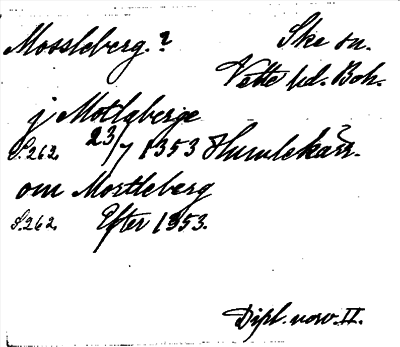 Mossleberg. ? Ske sn.
Vette hd. Boh.
j Motlaberge
S. 262. 23/7 1353 Humlekärr.
om Mortleberg
S. 262. Efter 1353.
Dipl. norv. II.